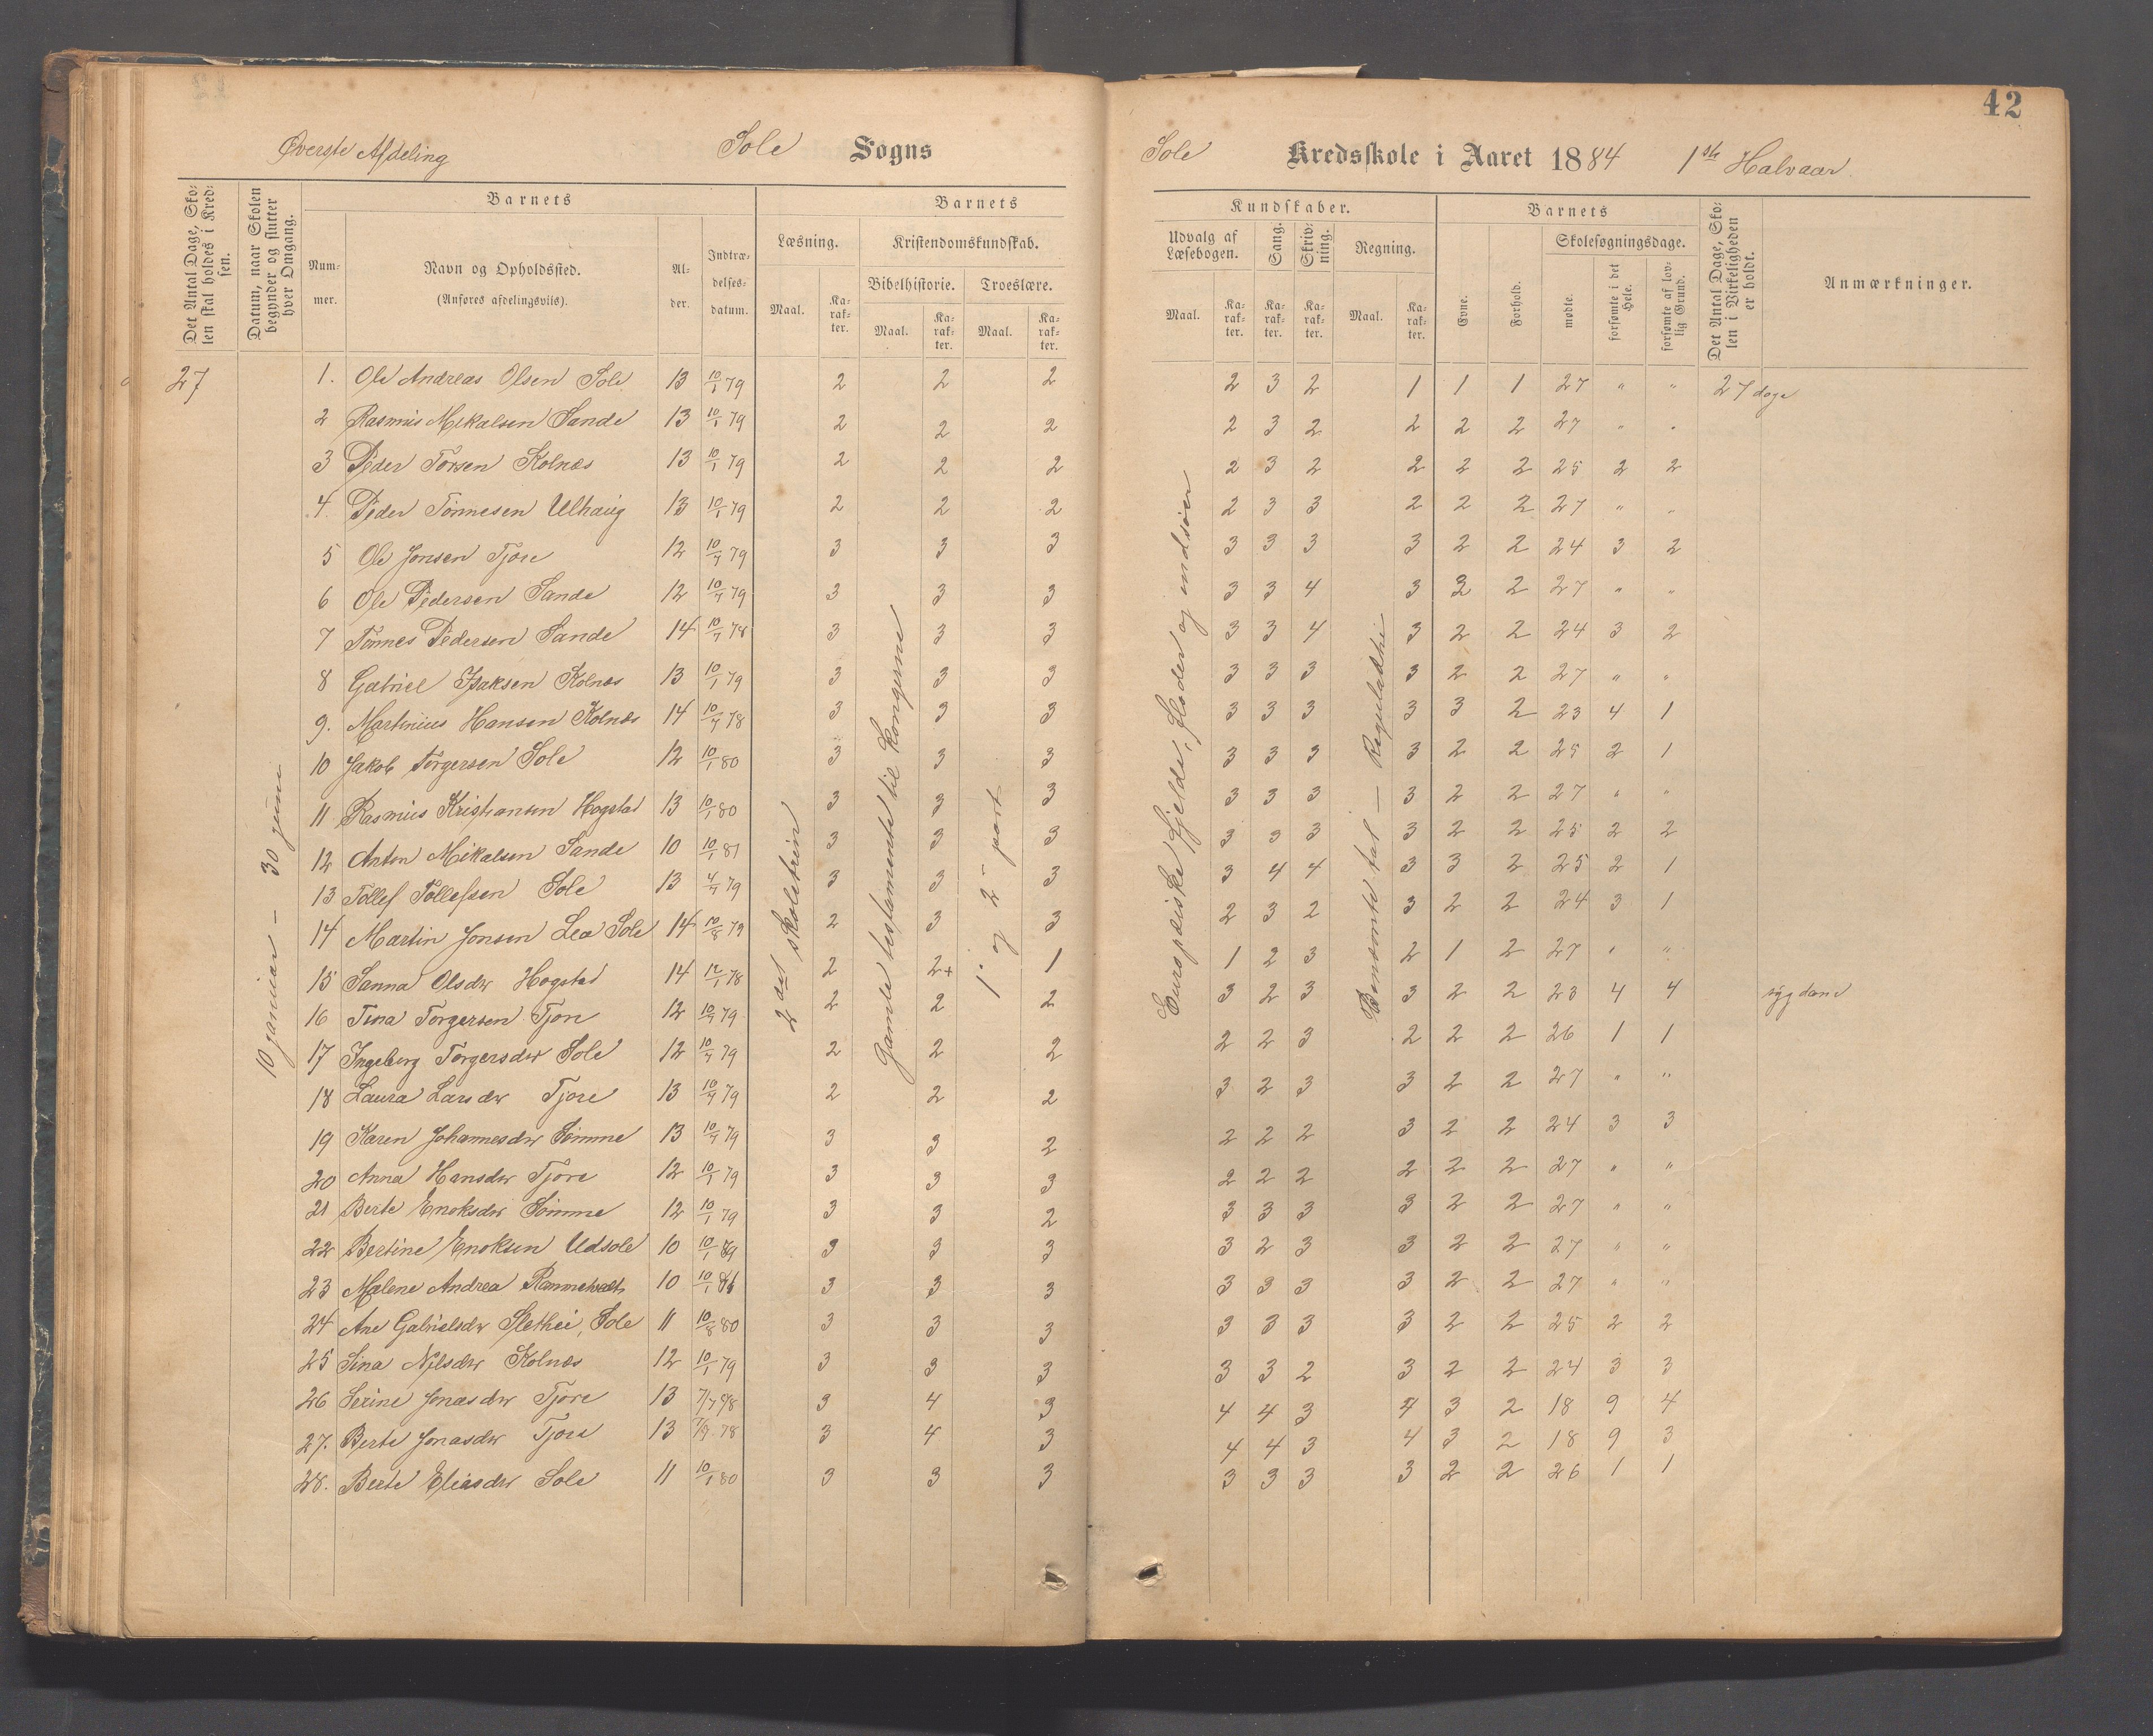 42
Øverste Afdeling Sole Sogns
Sole Kredsskole i Aaret 1884 1ste Halvaar.
Det Antal Dage, Skolen skal holdes i Kredsen.
Datum, naar Skolen begynder og slutter hver Omgang.
Barnets
Nummer.
Navn og Opholdssted.
(Anføres afdelingsviis).
Alder.
Indtrædelsesdatum.
Barnets
Læsning.
Maal. Karakter.
Kristendomskundskab.
Bibelhistorie. Troeslære.
Maal. Karakter. Maal. Karakter.
Kundskaber.
Udvalg af Læsebogen. Sang. Skrivning. Regning.
Maal. Karakter. Karakter. Karakter. Maal. Karakter.
Barnets
Evne. Forhold.
Skolesøgningsdage.
mødte. forsømte i det Hele. forsømte af lovlig Grund.
Det Antal Dage, Skolen i Virkeligheden er holdt.
Anmærkninger.
10 januar – 30 juni
2det skoletrin
Gamle testamente til kongerne
1 og 2 part
Europæiske fjelde, floder og indsøer
Benævnte tal — Reguladetri
27 1. Ole Andreas Olsen Sole 13 10/1 79 2 2 2 2 3 2 1 1 1 27 " " 27 dage
2 Rasmus Mikalsen Sande 13 10/1 79 2 2 2 2 3 2 2 2 2 27 " "
3 Peder Torsen Kolnæs 13 10/1 79 2 2 2 2 3 2 2 2 2 25 2 2
4. Peder Tönnesen Ulhaug 13 10/1 79 2 2 2 2 3 3 2 2 2 27 " "
5 Ole Jonsen Tjore 12 10/7 79 3 3 3 3 3 3 3 2 2 24 3 2
6 Ole Pedersen Sande 12 10/7 79 3 3 3 3 3 4 3 2 2 27 " "
7 Tönnes Pedersen Sande 14 10/7 78 3 3 3 3 3 4 3 2 2 24 3 2
8 Gabriel Isaksen Kolnes 13 10/1 79 3 3 3 3 3 3 3 2 2 27 " "
9. Martinius Hansen Kolnæs 14 10/7 78 3 3 3 3 3 3 3 3 2 23 4 1
10 Jakob Torgersen Sole 12 10/1 80 3 3 3 3 3 3 3 2 2 25 2 1
11 Rasmus Kristiansen Hogstad 13 10/1 80 3 3 3 3 3 3 3 2 2 27 " "
12 Anton Mikalsen Sande 10 10/1 81 3 3 3 3 3 3 3 2 2 25 2 2
13 Tollef Tollefsen Sole 13 4/7 79 3 3 3 3 4 4 3 3 2 25 2 1
14 Martin Jonsen Lea Sole 14 10/8 79 2 3 3 2 3 2 3 2 2 24 3 1
15 Sanna Olsdtr Hogstad 14 12/1 78 2 2+ 1 1 2 3 2 1 2 27 " "
16 Tina Torgersen Tjore 12 10/7 79 2 2 2 3 2 3 3 2 2 23 4 4 sygdom
17 Ingeborg Torgersdtr Sole 12 10/7 79 2 2 2 2 2 3 2 2 2 26 1 1
18 Laura Larsdtr Tjore 13 10/7 79 2 2 2 3 2 3 3 2 2 27 " "
19 Karen Johannesdtr Sömme 13 10/7 79 3 3 2 2 2 2 3 2 2 24 3 3
20 Anna Hansdtr Tjore 12 10/1 79 3 3 3 2 2 2 2 2 2 27 " "
21 Berte Enoksdtr Sömme 12 10/1 79 3 3 2 3 3 3 3 2 2 27 " "
22 Bertine Enoksen Udsole 10 10/1 3 3 3 3 2 3 3 2 2 27 " "
23 Malene Andrea 10 10/1 3 3 3 3 3 3 3 2 2 27 " "
24 Ane Gabrielsdtr Slethei, Sole 11 10/8 80 3 3 3 3 3 3 3 2 2 25 2 2
25 Sina Nilsdtr Kolnæs 12 10/1 79 3 3 3 3 3 2 3 2 2 24 3 3
26 Serine Jonasdtr Tjore 13 3 4 3 4 4 3 4 3 2 18 9 4
27. Berte Jonasdtr Tjore 13 7/9 78 3 4 3 4 4 3 4 3 2 18 9 3
28. Berte Eliasdtr Sole 11 10/1 80 3 3 3 3 3 3 3 2 2 26 1 1